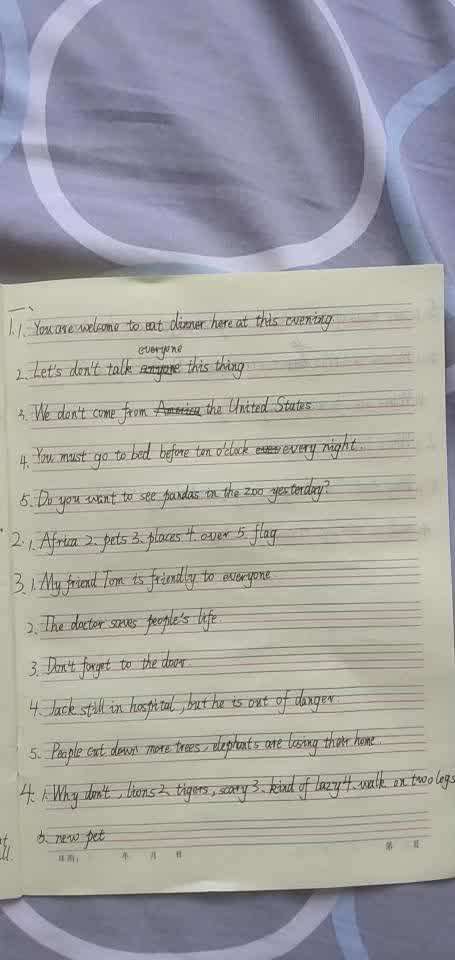 一、
1.1. You are welcome to eat dinner here at this evening.
everyone
2. Let's don't talk anyone this thing
3. We don't come from America the United States
4. You must go to bed before ten o'clock every night.
5. Do you want to see pandas in the zoo yesterday?
2.1. Africa 2. pets 3. places 4. over 5 flag
3.1. My friend Tom is friendly to everyone.
2. The doctor saves people's life.
3. Don't forget to the door.
4. Jack still in hospital, but he is out of danger.
5. People cut down more trees, elephants are losing their home.
4. 1. Why don't, lions 2. tigers, scary 3. kind of lazy 4. walk on two legs
5. new pet
日期: 年 月 日 第 页